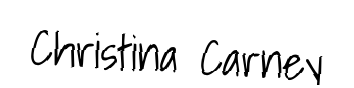 Christina Carney